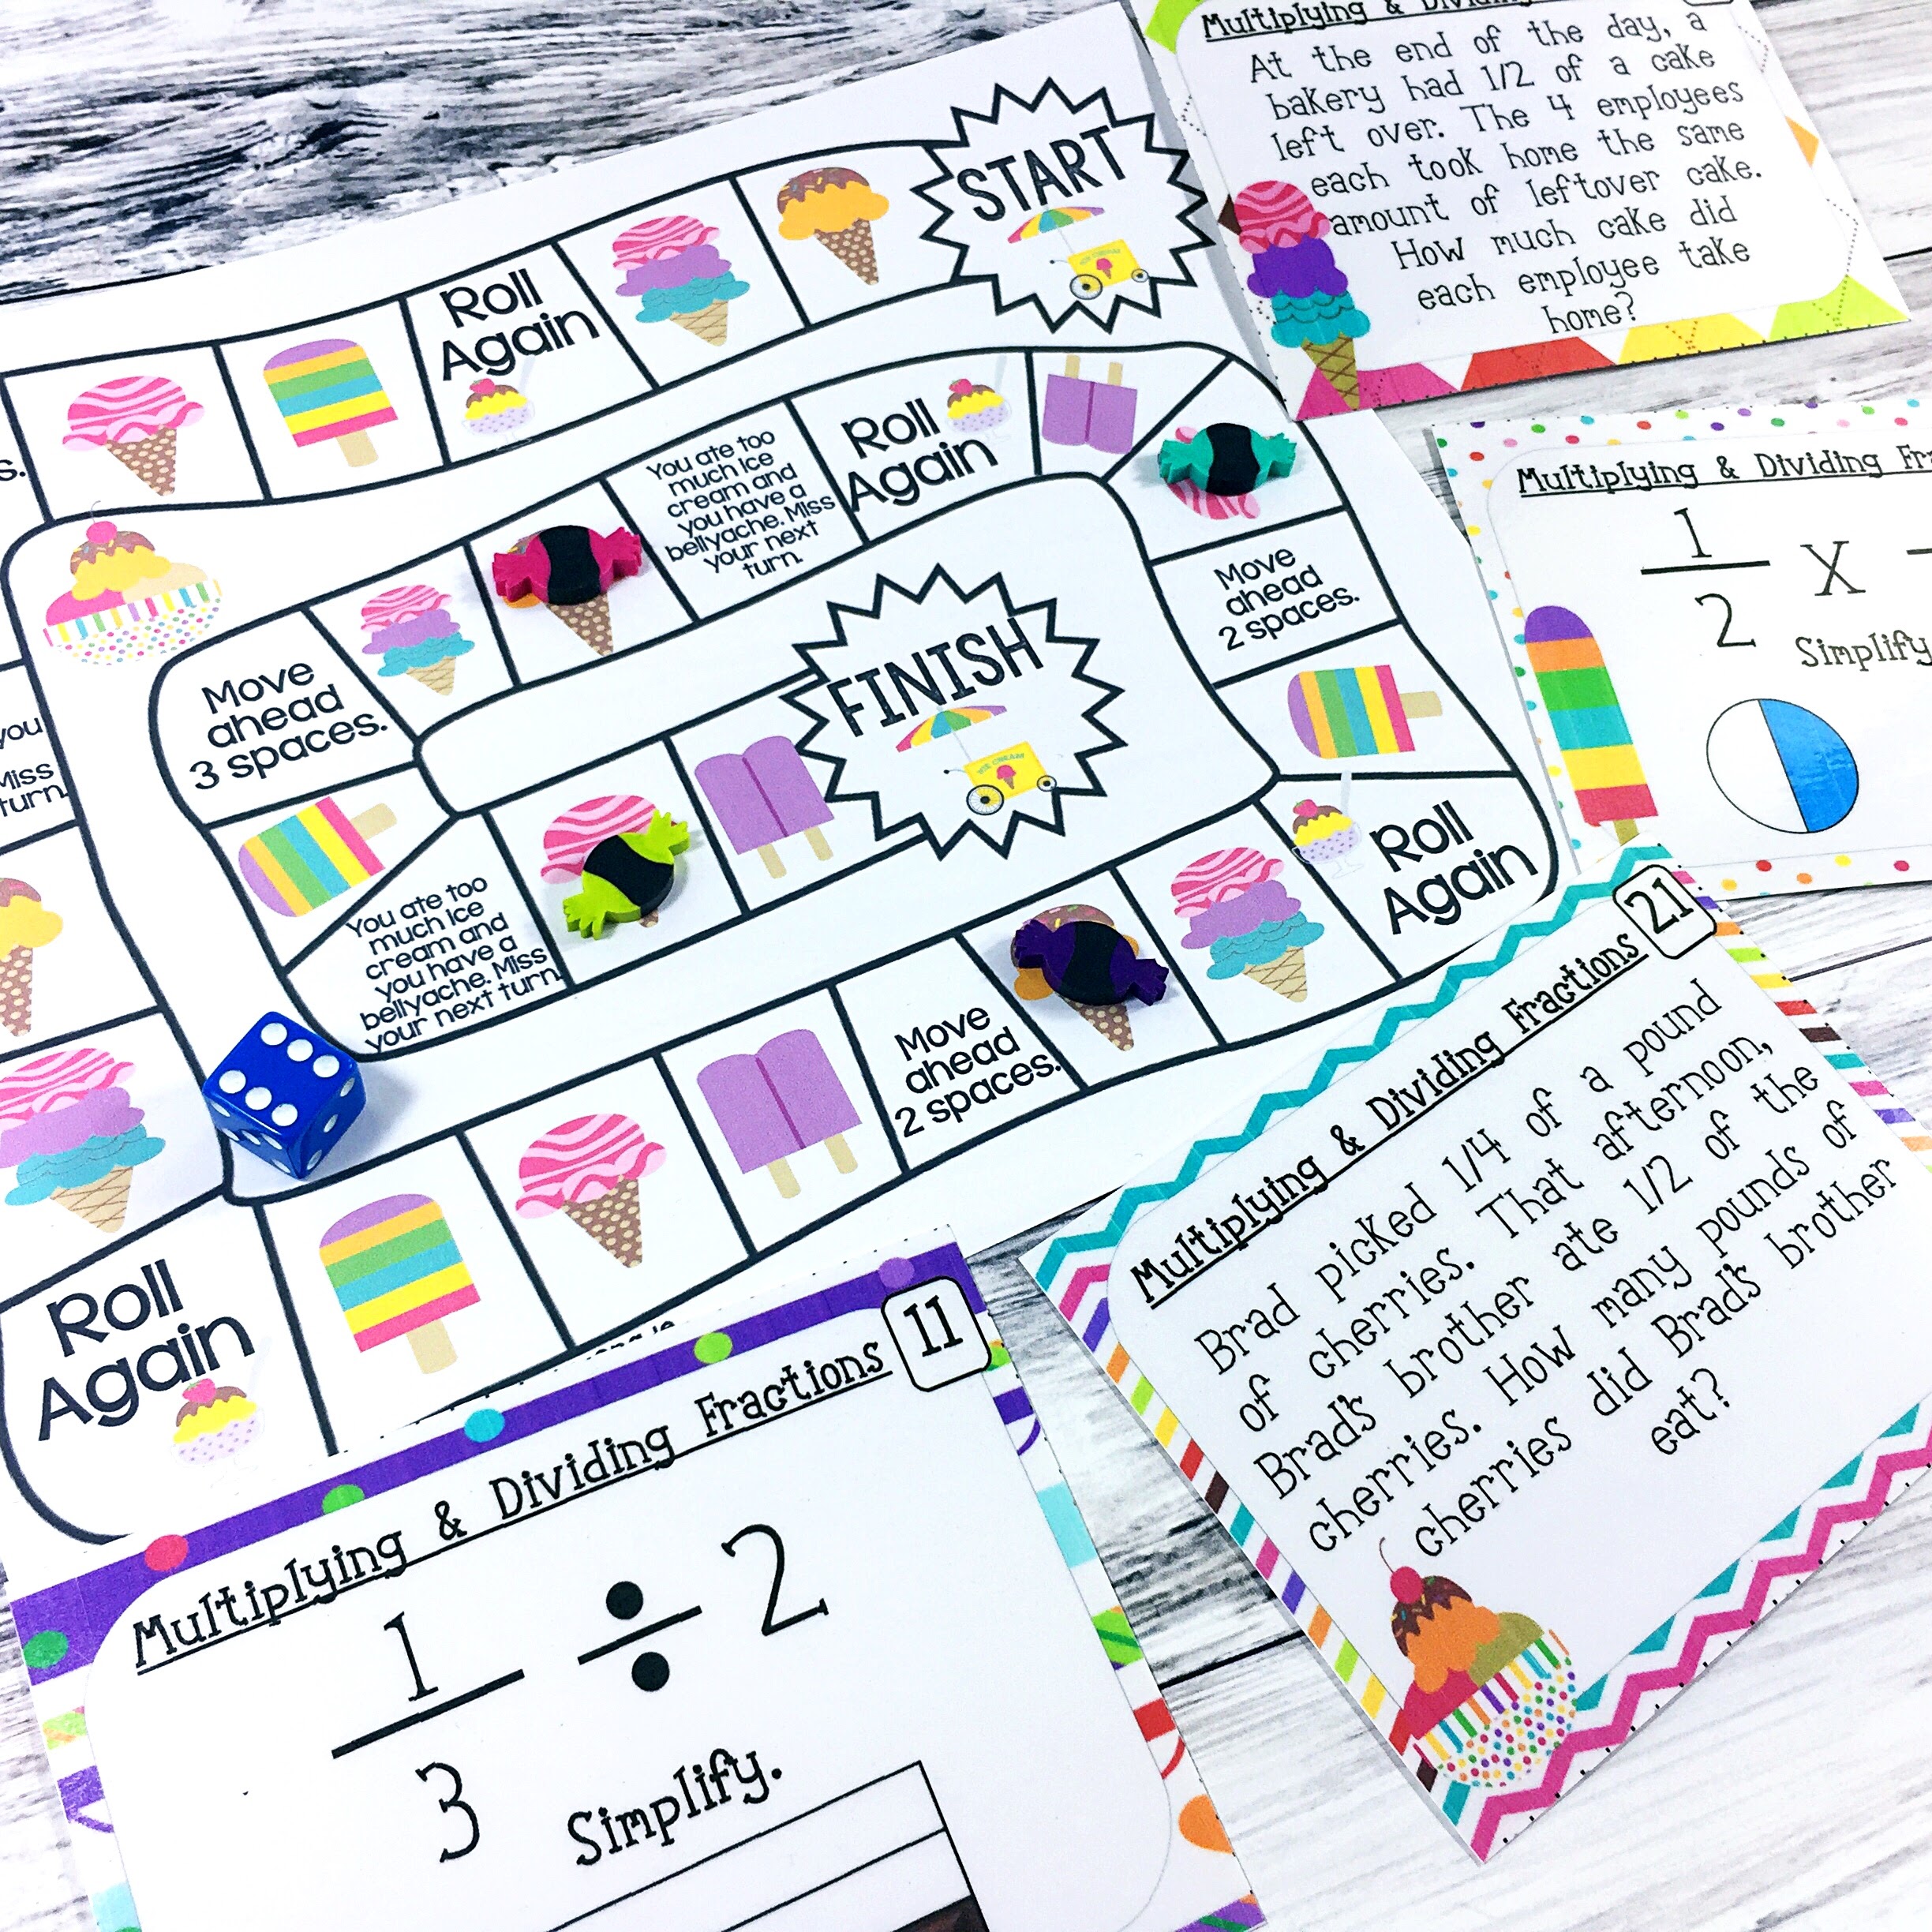 START
Roll
Again
Roll
Again
You ate too
much ice
cream and
you have a
bellyache. Miss
your next
turn.
Move
ahead
2 spaces.
Move
ahead
3 spaces.
FINISH
ICE CREAM
you
Miss
turn.
You ate too
much ice
cream and
you have a
bellyache. Miss
your next turn.
Roll
Again
Move
ahead
2 spaces.
Roll
Again
Multiplying & Dividing
At the end of the day, a
bakery had 1/2 of a cake
left over. The 4 employees
each took home the same
amount of leftover cake.
How much cake did
each employee take
home?
Multiplying & Dividing Fr
1
2
X
Simplify
21
Multiplying & Dividing Fractions
Brad picked 1/4 of a pound
of cherries. That afternoon,
Brad's brother ate 1/2 of the
cherries. How many pounds of
cherries did Brad's brother
eat?
11
Multiplying & Dividing Fractions
1
3
÷ 2
Simplify.